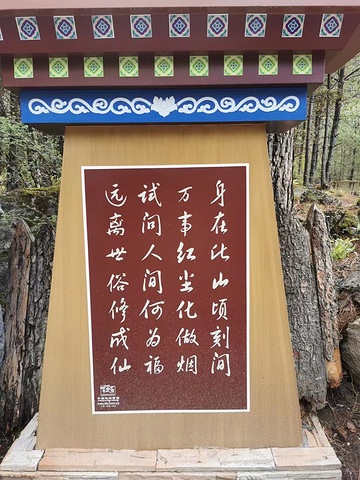 身在此山顷刻间
万事红尘化做烟
试问人间何为福
远离世俗修成仙